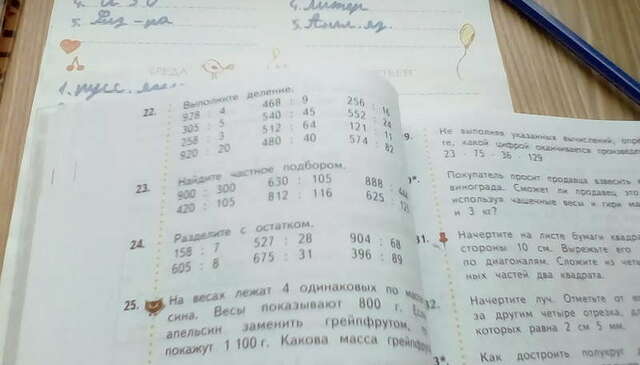 5. Физ-ра
4. Литер
5. Англ. яз.
СРЕДА
22. Выполните деление.
928 : 4 468 : 9 256 : 16
305 : 5 540 : 45 552 : 24
258 : 3 512 : 64 121 : 11
920 : 20 480 : 40 574 : 82
23. Найдите частное подбором.
900 : 300 630 : 105 888 : 444
420 : 105 812 : 116 625 : 125
24. Разделите с остатком.
158 : 7 527 : 28 904 : 68
605 : 8 675 : 31 396 : 89
25. На весах лежат 4 одинаковых по массе
сина. Весы показывают 800 г.
апельсин заменить грейпфрутом,
покажут 1 100 г. Какова масса грейпфру
9. Не выполняя указанных вычислений, опре
те, какой цифрой оканчивается произвед
23 · 75 · 36 · 129
Покупатель просит продавца взвесить
винограда. Сможет ли продавец это
используя чашечные весы и гири ма
и 3 кг?
31. Начертите на листе бумаги квадрат
стороны 10 см. Вырежьте его
по диагоналям. Сложите из четы
ных частей два квадрата.
Начертите луч. Отметьте от
за другим четыре отрезка,
которых равна 2 см 5 мм.
Как достроить полукруг